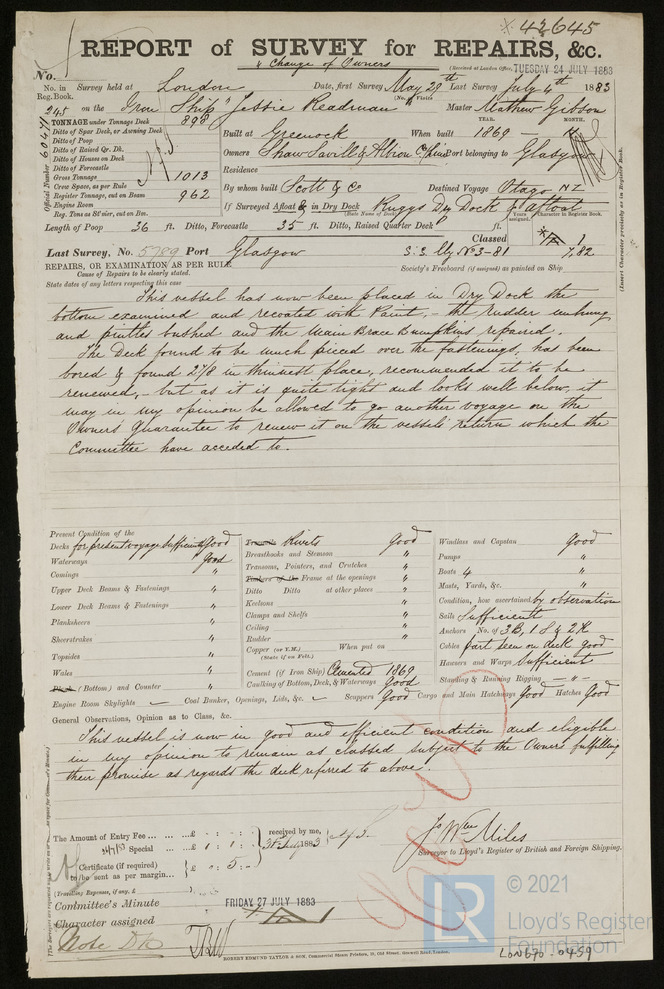 42645
REPORT of SURVEY for REPAIRS, &c.
" Change of Owners
(Received at London Office, TUESDAY 24 JULY 1883
No.
No. in Reg. Book. Survey held at London Date, first Survey May 29th Last Survey July 4th 1883
(No. of Visits
245 on the Iron Ship "Jessie Readman" Master Mathew Gibson
Official Number 60471
TONNAGE under Tonnage Deck 898
Ditto of Spar Deck, or Awning Deck
Ditto of Poop
Ditto of Raised Qr. Dk.
Ditto of Houses on Deck
Ditto of Forecastle
Gross Tonnage 1013
Crew Space, as per Rule
Register Tonnage, cut on Beam 962
Engine Room
Reg. Tons as St'mer, cut on Bm.
YEAR. MONTH
Built at Greenock When built 1869 —
Owners Shaw Savill & Albion Co Limd Port belonging to Glasgow
Residence
By whom built Scott & Co Destined Voyage Otago NZ
If Surveyed Afloat & in Dry Dock Dry Dock & afloat
(State Name of Dock)
Years assigned. Character in Register Book.
(Insert Character precisely as in Register Book.
Length of Poop 36 ft. Ditto, Forecastle 35 ft. Ditto, Raised Quarter Deck ft.
Classed 1
Last Survey, No. 5789 Port Glasgow S.S. No 3-81 7,82
REPAIRS, OR EXAMINATION AS PER RULE
Society's Freeboard (if assigned) as painted on Ship
Cause of Repairs to be clearly stated.
State dates of any letters respecting this case
This vessel has now been placed in Dry Dock the
bottom examined and recoated with Paint,— the rudder unhung
and pintles bushed and the Main Brace Bumpkins repaired.
The Deck found to be much pieced over the fastenings, has been
bored & found 2 7/8 in thinnest place, recommended it to be
renewed,— but as it is quite tight and looks well below, it
may in my opinion be allowed to go another voyage on the
Owners Guarantee to renew it on the vessels return which the
Committee have acceded to.
Present Condition of the
Decks for present voyage Sufficiently Good
Waterways Good
Comings "
Upper Deck Beams & Fastenings "
Lower Deck Beams & Fastenings "
Planksheers "
Sheerstrakes "
Topsides "
Wales "
Plank (Bottom) and Counter "
Engine Room Skylights — Coal Bunker, Openings, Lids, &c. — Scuppers Good Cargo and Main Hatchways Good Hatches Good
Treenails Rivets Good
Breasthooks and Stemson "
Transoms, Pointers, and Crutches "
Timbers of the Frame at the openings "
Ditto Ditto at other places "
Keelsons "
Clamps and Shelfs "
Ceiling "
Rudder "
Copper (or Y.M.) When put on
(State if on Felt.)
Cement (if Iron Ship) Cemented 1869
Caulking of Bottom, Deck, & Waterways Good
Windlass and Capstan Good
Pumps "
Boats 4 "
Masts, Yards, &c. "
Condition, how ascertained by observation
Sails Sufficient
Anchors No. of 3 B, 1 S & 2 K
Cables part seen on deck good
Hawsers and Warps Sufficient
Standing & Running Rigging — " —
General Observations, Opinion as to Class, &c.
This vessel is now in good and efficient condition and eligible
in my opinion to remain as classed subject to the Owners fulfilling
their promise as regards the deck referred to above.
The Amount of Entry Fee ... ... ... £ : :
Special ... ... £ 1 : 1 :
received by me,
1883
Certificate (if required) £ : 5 :
to be sent as per margin...
(Travelling Expenses, if any, £ )
Jo Wm Miles
Surveyor to Lloyd's Register of British and Foreign Shipping.
Committee's Minute FRIDAY 27 JULY 1883
Character assigned 1
Note
ROBERT EDMUND TAYLOR & SON, Commercial Steam Printers, 19, Old Street, Goswell Road, London.
LR
© 2021
Lloyd's Register
Foundation
LON690-0459